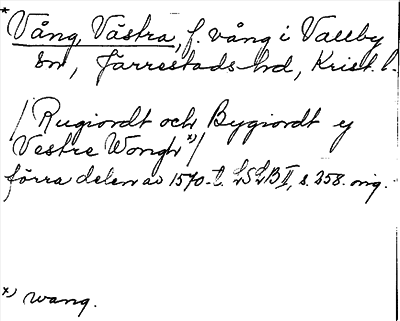 * Vång, Västra, f. vång i Vallby
sn, Järrestads hd, Krist. l.
/Rugiordt och Bygiordt y
Vestre Wongh*)/
förra delen av 1570-t. LSLB II, s. 258. orig.
*) wang.